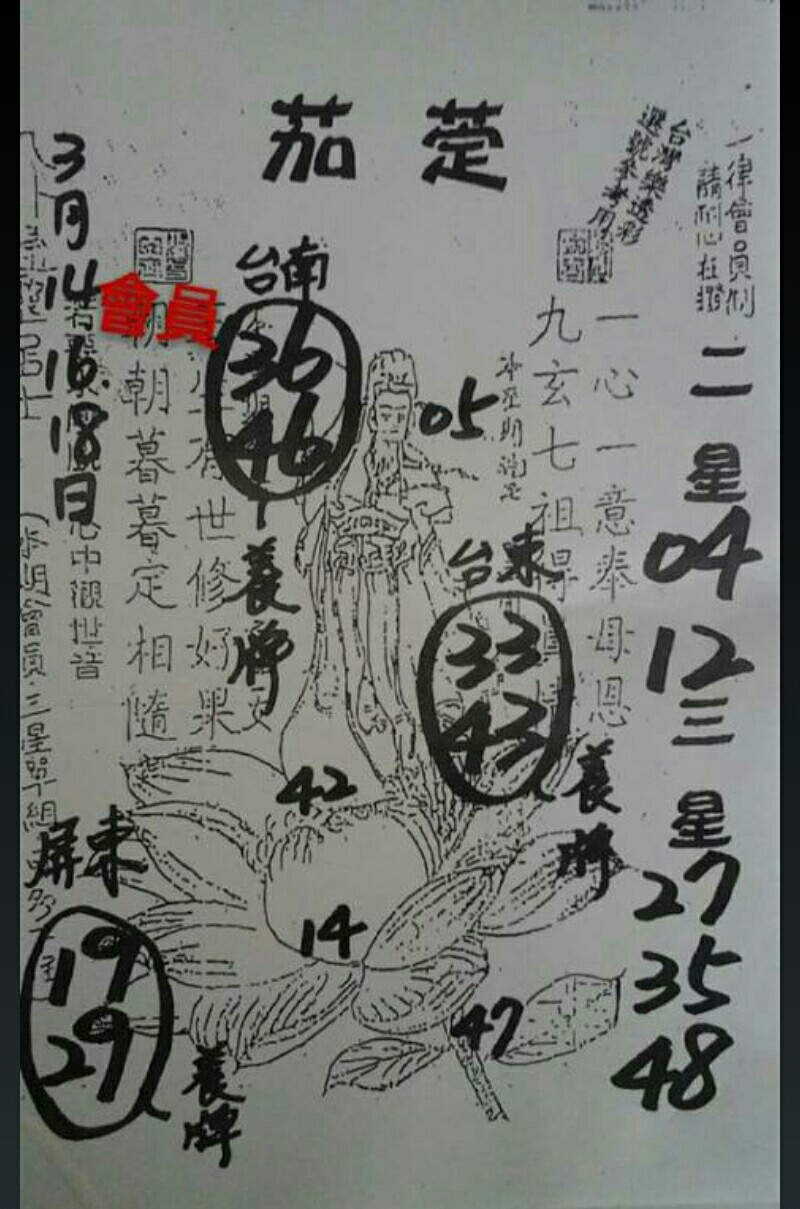 茄萣
一律會員制
請耐心在攢
台灣樂透彩
選號參考用
二星
04
12
三星
27
35
48
一心一意奉母恩
九玄七祖得
05
台東
33
43
養牌
台南
36
46
養牌
世修好果
朝朝暮暮定相隨
心中觀世音
會員
3月14.16.18日
42
14
47
屏東
19
29
養牌